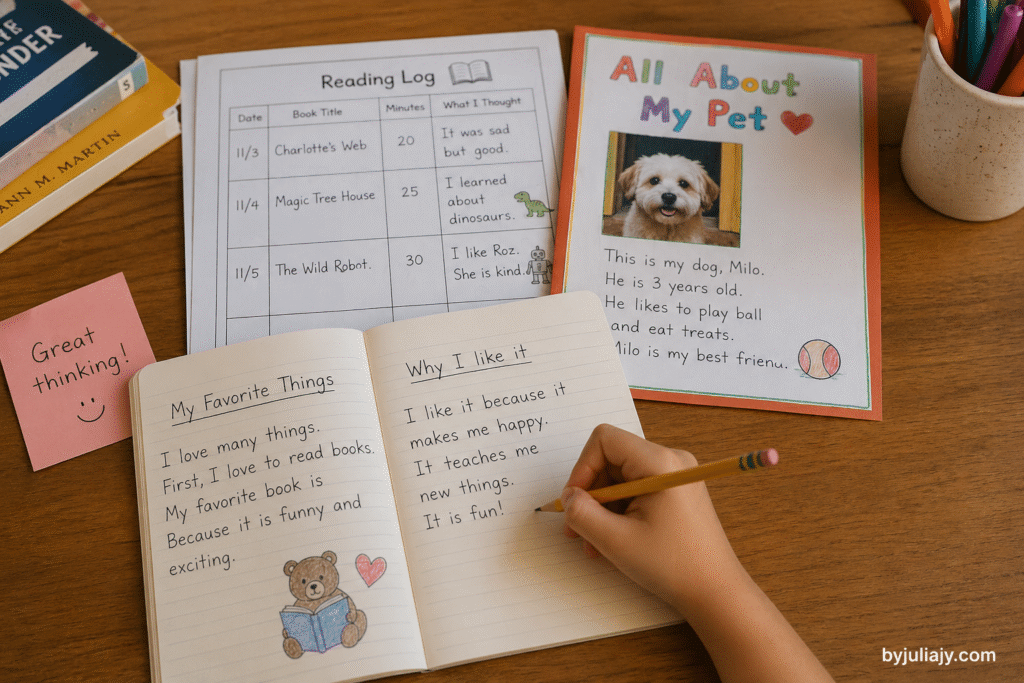 NDER
S
ANN M. MARTIN
Reading Log
Date Book Title Minutes What I Thought
11/3 Charlotte's Web 20 It was sad
but good.
11/4 Magic Tree House 25 I learned
about
dinosaurs.
11/5 The Wild Robot. 30 I like Roz.
She is kind.
All About
My Pet
This is my dog, Milo.
He is 3 years old.
He likes to play ball
and eat treats.
Milo is my best frienu.
Great
thinking!
My Favorite Things
I love many things.
First, I love to read books.
My favorite book is
Because it is funny and
exciting.
Why I like it
I like it because it
makes me happy.
It teaches me
new things.
It is fun!
byjuliajy.com